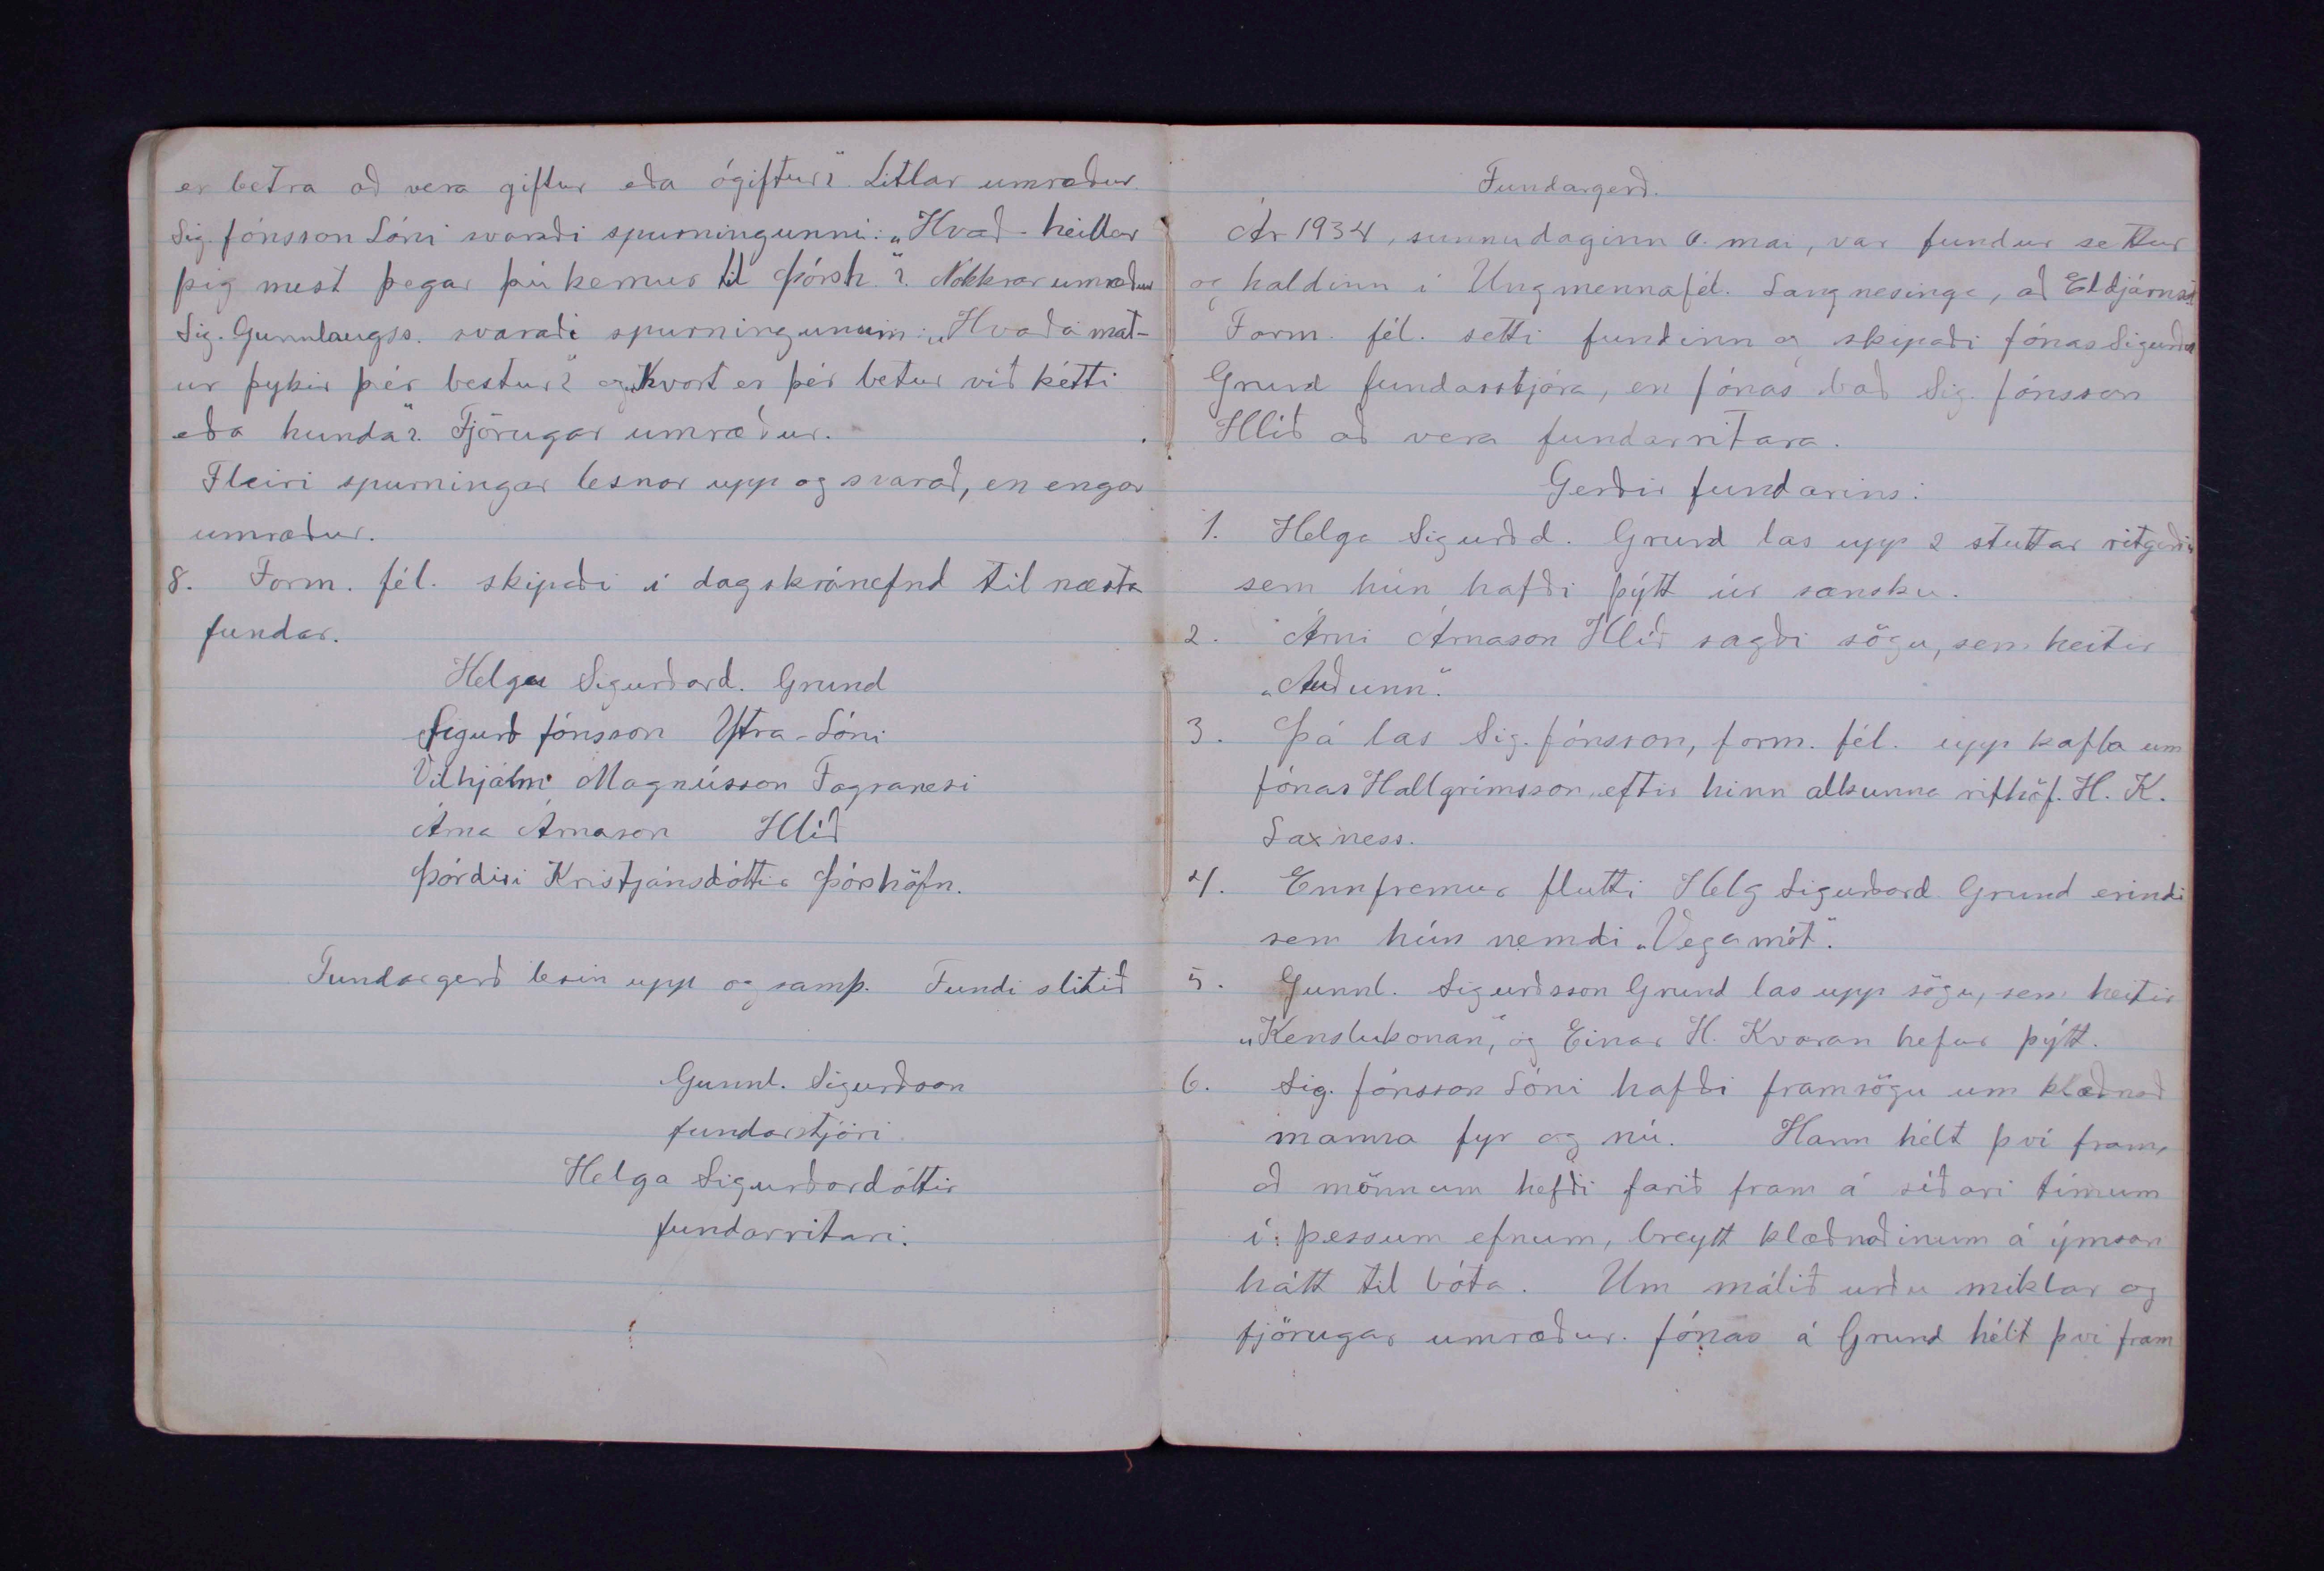 er betra að vera giftur eða ógiftur"? Litlar umræður.
Sig. Jónsson Lóni svaraði spurningunni: „Hvað heillar
þig mest þegar þú kemur til Þórsh."? Nokkrar umræður
Sig. Gunnlaugss. svaraði spurningunum: „Hvaða mat-
ur þykir þér bestur"? og „Hvort er þér betur við ketti
eða hunda"? Fjörugar umræður.
Fleiri spurningar lesnar upp og svarað, en engar
umræður.
8. Form. fél. skipaði í dagskránefnd til næsta
fundar.
Helgu Sigurðard. Grund
Sigurð Jónsson Ytra-Lóni
Vilhjálm Magnússon Fagranesi
Árna Árnason Hlíð
Þórdísi Kristjánsdóttir Þórshöfn.
Fundargerð lesin upp og samþ. Fundi slitið
Gunnl. Sigurðsson
fundarstjóri
Helga Sigurðardóttir
fundarritari.
Fundargerð.
Ár 1934, sunnudaginn 6. maí, var fundur settur
og haldinn í Ungmennafél. Langnesinga, að Eldjárnsst.
Form. fél. setti fundinn og skipaði Jónas Sigurðss
Grund fundarstjóra, en Jónas bað Sig. Jónsson
Hlíð að vera fundarritara.
Gerðir fundarins:
1. Helga Sigurðd. Grund las upp 2 stuttar ritgerðir
sem hún hafði þýtt úr sænsku.
2. Árni Árnason Hlíð sagði sögu, sem heitir
„Auðunn".
3. Þá las Sig. Jónsson, form. fél. upp kafla um
Jónas Hallgrímsson, eftir hinn alkunna rithöf. H. K.
Laxness.
4. Ennfremur flutti Helg Sigurðard. Grund erindi
sem hún nemdi „Vegamót".
5. Gunnl. Sigurðsson Grund las upp sögu, sem heitir
„Kenslukonan", og Einar H. Kvaran hefur þýtt.
6. Sig. Jónsson Lóni hafði framsögu um klæðnað
manna fyr og nú. Hann hélt því fram,
að mönnum hefði farið fram á síðari tímum
í þessum efnum, breytt klæðnaðinum á ýmsan
hátt til bóta. Um málið urðu miklar og
fjörugar umræður. Jónas á Grund hélt því fram